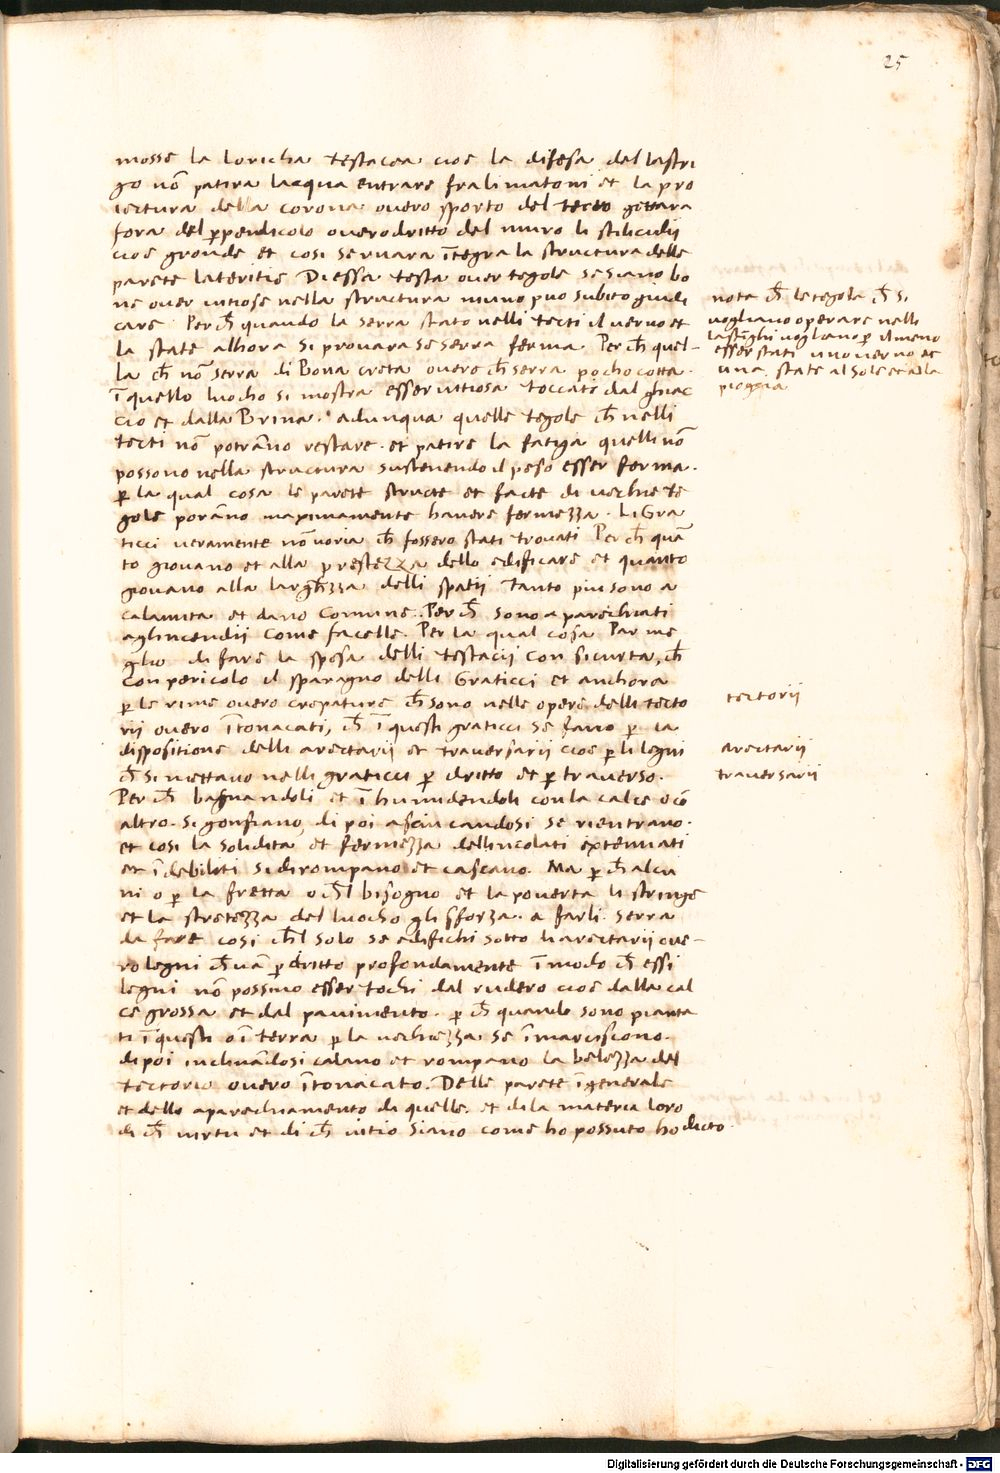 25
mosse la loricha testacea cioe la difesa del lastri
go nō patira lacqua entrare fra li matoni et la pro
iectura della corona overo sporto del tecto gettara
fora del ꝑpendicolo overo dritto del muro li stilicidii
cioe gronde et cosi servara ītegra la structura delle
parete lateritie Di essa testa over tegole se siano bo
ne over vitiose nella structura niuno puo subito giudi
care Per ch̄ quando la serra stato nelli tecti il verno et
la state alhora si provara se serra ferma. Per ch̄ quel-
la ch̄ nō serra di Bona creta overo ch̄ serra pocho cotta
ī quello luocho si mostra esser vitiosa toccate dal ghiac
cio et dalla Brina. adunqua quelle tegole ch̄ nelli
tecti nō potrāno restare. et patire la fatiga quelli nō
possono nella structura sustenendo il peso esser ferma.
ꝑ la qual cosa le parete structe et facte di vechie te
gole porāno maximamente havere fermezza. Li Gra
ticci veramente nō voria ch̄ fossero stati trovati Per ch̄ quā
to giovano et alla prestezza dello edificare et quanto
giovano alla larghezza delli spatii tanto piu sono a
calamita et dano Comune. Per ch̄ sono aparechiati
agli incendii come facelle. Per la qual cosa Par me
glio di fare la spesa delli testacii con sicurta, ch̄
con pericolo il sparagno delli Graticci et anchora
ꝑ le rime overo crepature ch̄ sono nelle opere delli tecto
rii overo ītonacati, ch̄ ī questi graticci se fano ꝑ la
dispositione delli arectarii et traversarii cioe ꝑ li legni
ch̄ si mettano nelli graticci ꝑ dritto et ꝑ traverso.
Per ch̄ bagnandoli et īhumidendoli con la calce o cō
altro. si gonfiano, di poi asciucandosi se rientrano.
et cosi la solidita et fermezza dellincolati extenuati
et īdebiloti si dirompano et cascano. Ma ꝑ ch̄ alcu
ni o ꝑ la fretta o ch̄l bisogno et la poverta li stringe
et la stretezza del luocho gli sforza. a farli. serra
da fare cosi ch̄l solo se edifichi sotto li arectarii ove-
ro legni ch̄ vā ꝑ dritto profondamente ī modo ch̄ essi
legni nō possino esser tochi dal rudero cioe dalla cal
ce grossa et dal pavimento. ꝑ ch̄ quando sono pianta
ti ī questi o ī terra ꝑ la vechiezza se īmarciscono.
di poi inclinādosi calano et rompano la belezza del
tectorio overo ītonacato. Delle parete ī generale
et dello aparechiamento di quelle. et di la materia loro
di ch̄ virtu et di ch̄ vitio siano come ho possuto ho dicto
nota ch̄ le tegola ch̄ si
vogliano operare nelli
lastrighi vogliano ꝑ il meno
esser stati uno verno et
una state al sole et alla
pioggia
tectorii
arectarii
traversarii
Digitalisierung gefördert durch die Deutsche Forschungsgemeinschaft - DFG